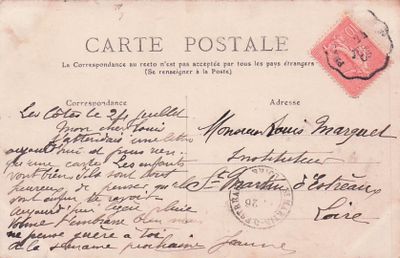 CARTE POSTALE
La Correspondance au recto n'est pas acceptée par tous les pays étrangers
(Se renseigner à la Poste)
Correspondance
Adresse
Les Côtes le 24 juillet
Mon cher Louis
J'attendais une lettre
aujourd'hui et puis rien.
qu'une carte. Les enfants
vont bien. Ils sont tout
heureux de penser qu'ils
vont enfin te revoir.
Aujourd'hui pluie
ne pense guère à toi
à la semaine prochaine Jeanne
Monsieur Louis Marguet
Instituteur
St Martin d'Estréaux
Loire